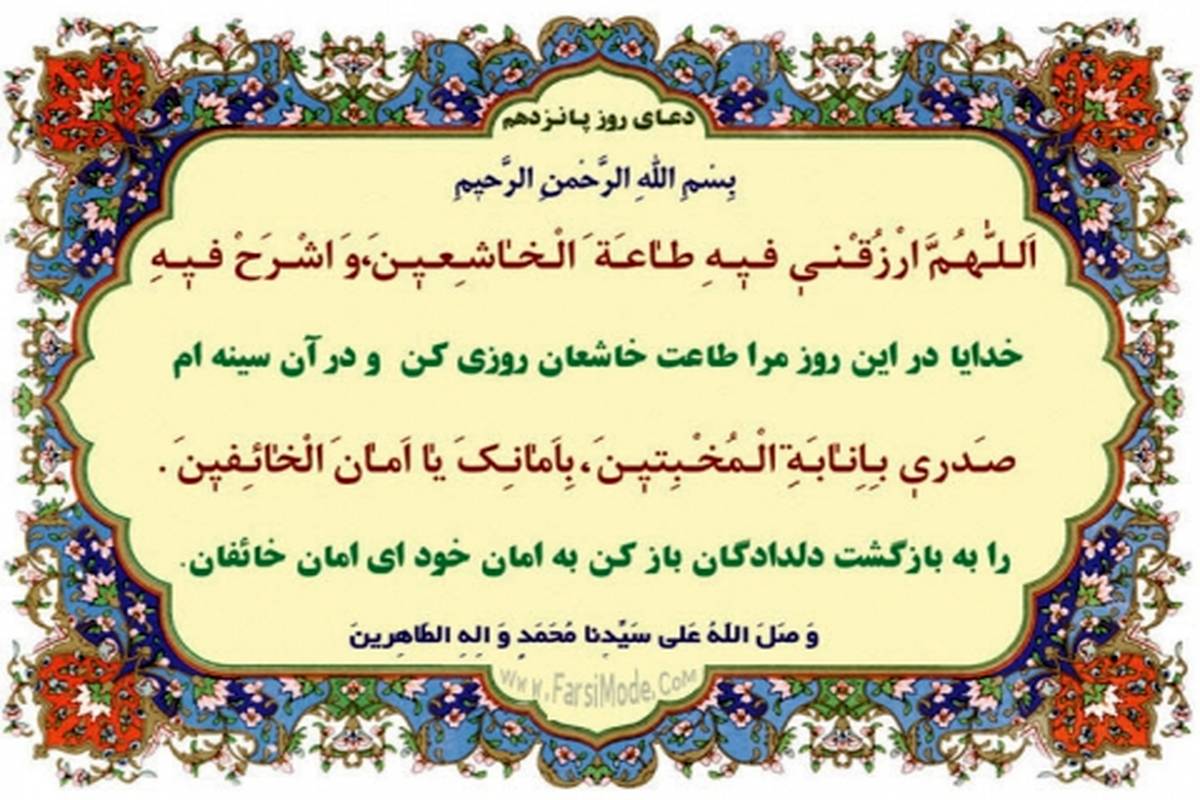 دعای روز پانزدهم
بِسْمِ اللهِ الرَّحْمنِ الرَّحیمِ
اَللّٰهُمَّ ارْزُقْنی فیهِ طاعَةَ الْخاشِعینَ،وَ اشْرَحْ فیهِ
خدایا در این روز مرا طاعت خاشعان روزی کن و در آن سینه ام
صَدری بِاِنابَةِ الْمُخْبِتینَ، بِاَمانِکَ یا اَمانَ الْخائِفینَ .
را به بازگشت دلدادگان باز کن به امان خود ای امان خائفان.
وَ صَلَ اللهُ عَلی سَیِّدِنا مُحَمَدٍ وَ الِهِ الطّاهِرینَ
www.FarsiMode.CoM